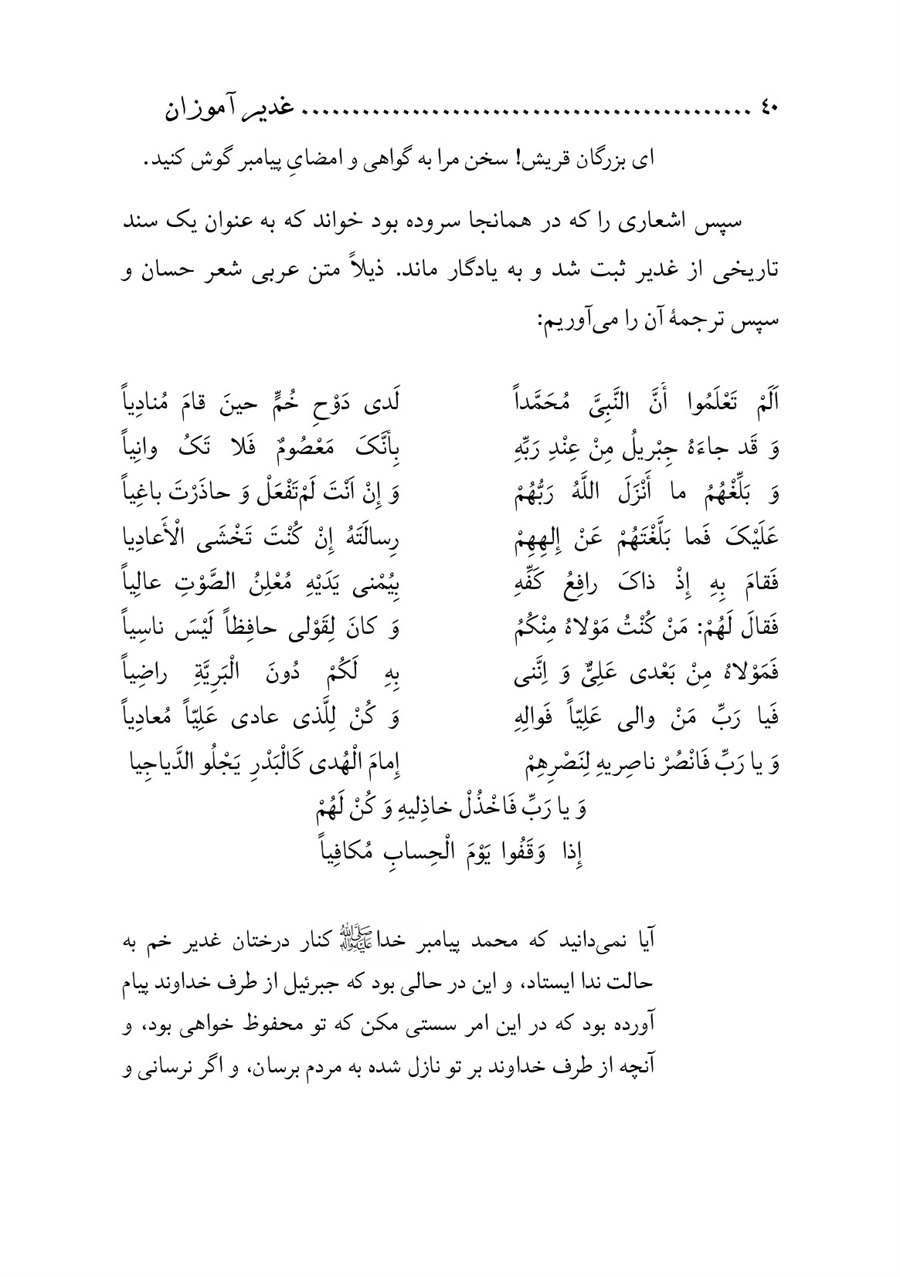 ٤٠ ............................................. غدیر آموزان
ای بزرگان قریش! سخن مرا به گواهی و امضایِ پیامبر گوش کنید.
سپس اشعاری را که در همانجا سروده بود خواند که به عنوان یک سند
تاریخی از غدیر ثبت شد و به یادگار ماند. ذیلاً متن عربی شعر حسان و
سپس ترجمهٔ آن را می‌آوریم:
اَلَمْ تَعْلَمُوا أَنَّ النَّبِیَّ مُحَمَّداً لَدی دَوْحِ خُمٍّ حینَ قامَ مُنادِیاً
وَ قَد جاءَهُ جِبْریلُ مِنْ عِنْدِ رَبِّهِ بِأَنَّکَ مَعْصُومٌ فَلا تَکُ وانِیاً
وَ بَلِّغْهُمُ ما أَنْزَلَ اللَّهُ رَبُّهُمْ وَ إِنْ اَنْتَ لَمْ‌تَفْعَلْ وَ حاذَرْتَ باغِیاً
عَلَیْکَ فَما بَلَّغْتَهُمْ عَنْ إِلهِهِمْ رِسالَتَهُ إِنْ کُنْتَ تَخْشَی الْأَعادِیا
فَقامَ بِهِ إِذْ ذاکَ رافِعُ کَفِّهِ بِیُمْنی یَدَیْهِ مُعْلِنُ الصَّوْتِ عالِیاً
فَقالَ لَهُمْ: مَنْ کُنْتُ مَوْلاهُ مِنْکُمُ وَ کانَ لِقَوْلی حافِظاً لَیْسَ ناسِیاً
فَمَوْلاهُ مِنْ بَعْدی عَلِیٌّ وَ اِنَّنی بِهِ لَکُمْ دُونَ الْبَرِیَّةِ راضِیاً
فَیا رَبِّ مَنْ والی عَلِیّاً فَوالِهِ وَ کُنْ لِلَّذی عادی عَلِیّاً مُعادِیاً
وَ یا رَبِّ فَانْصُرْ ناصِریهِ لِنَصْرِهِمْ إِمامَ الْهُدی کَالْبَدْرِ یَجْلُو الدَّیاجِیا
وَ یا رَبِّ فَاخْذُلْ خاذِلیهِ وَ کُنْ لَهُمْ
إِذا وَقَفُوا یَوْمَ الْحِسابِ مُکافِیاً
آیا نمی‌دانید که محمد پیامبر خدا ﷺ کنار درختان غدیر خم به
حالت ندا ایستاد، و این در حالی بود که جبرئیل از طرف خداوند پیام
آورده بود که در این امر سستی مکن که تو محفوظ خواهی بود، و
آنچه از طرف خداوند بر تو نازل شده به مردم برسان، و اگر نرسانی و